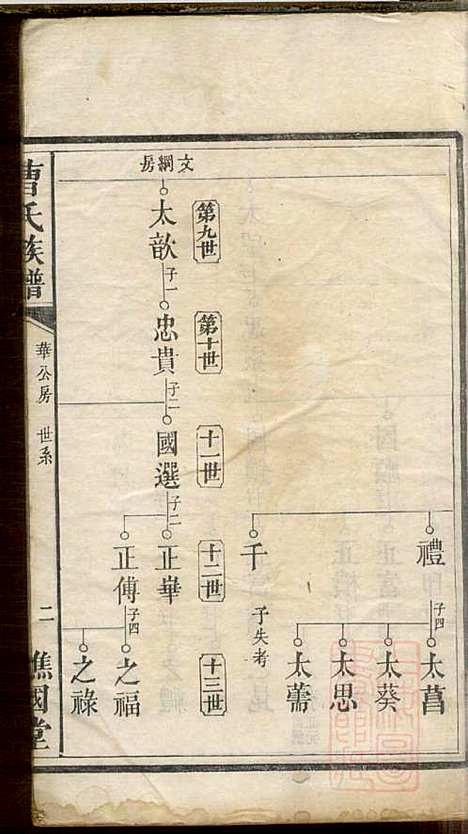 禮
子四
太菖
太葵
太思
太蓍
千
子失考
文綱房
第九世
第十世
十一世
十二世
十三世
太歆
子一
忠貴
子二
國選
子二
正華
正傳
子四
之福
之祿
曹氏族譜
華公房
世系
二
譙國堂